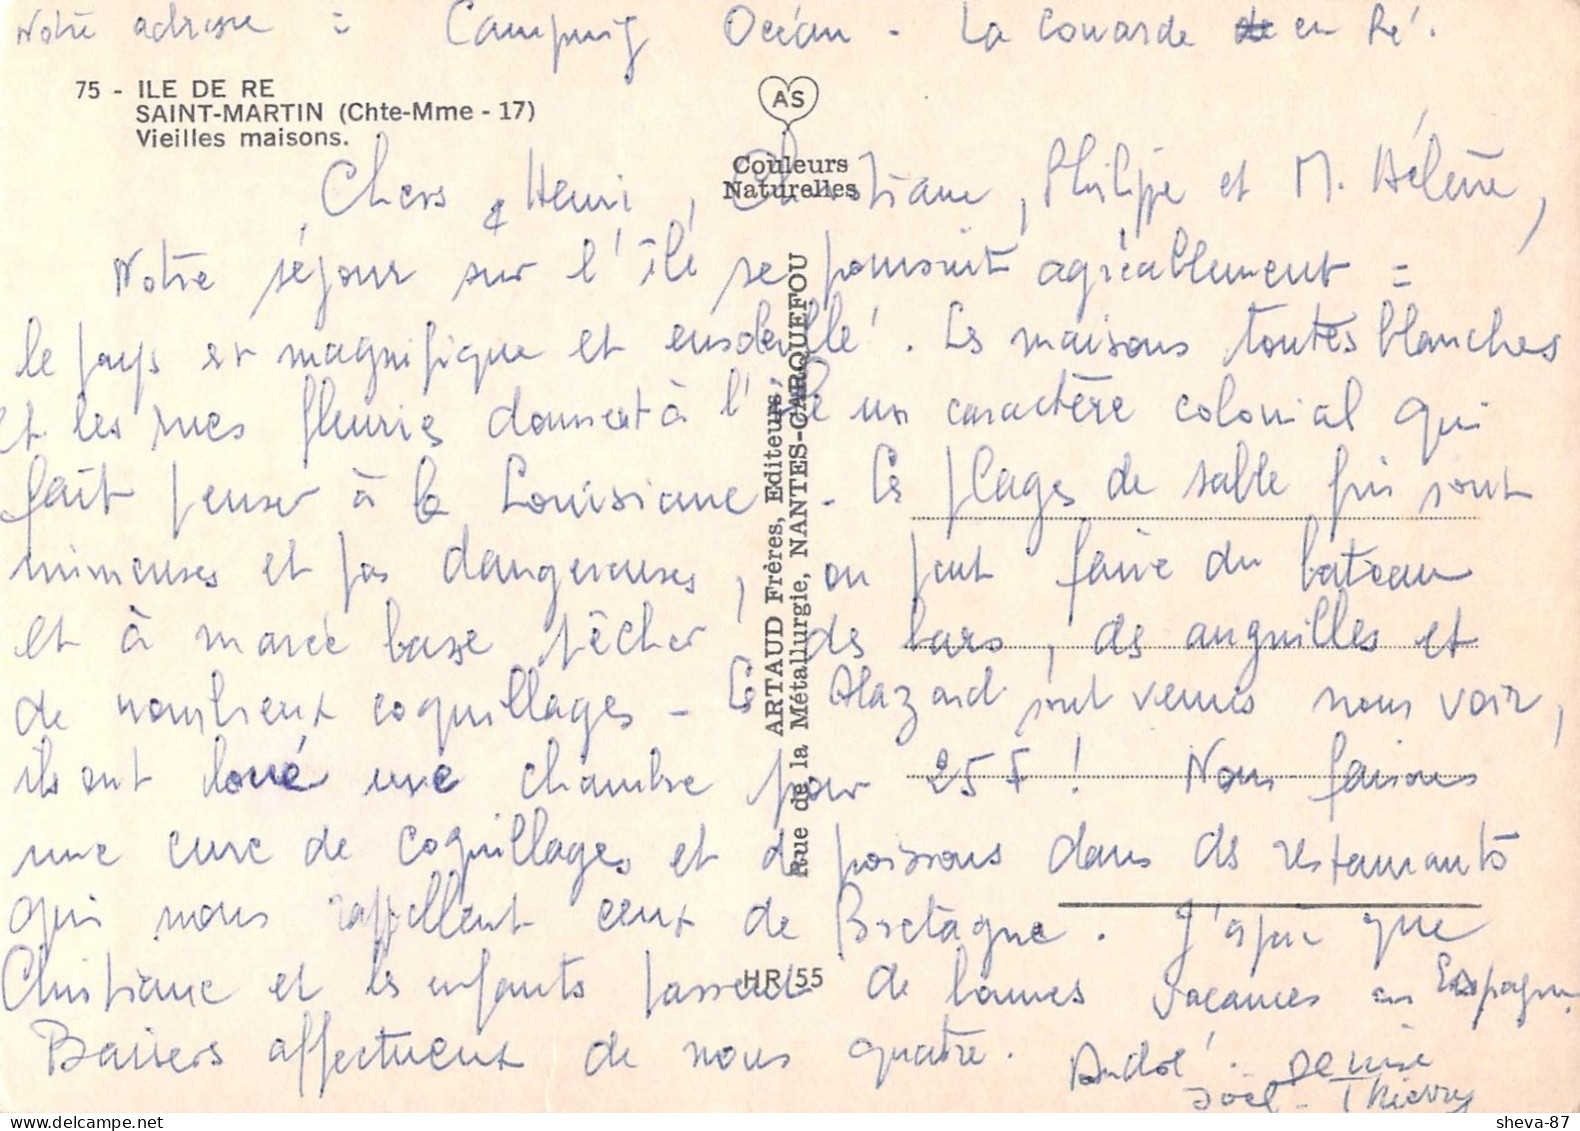 Notre adresse : Camping Océan - La Couarde en Ré.
75 - ILE DE RE
SAINT-MARTIN (Chte-Mme - 17)
Vieilles maisons.
AS
Couleurs
Naturelles
Chers Henri, Christiane, Philippe et M. Hélène,
Notre séjour sur l'île se poursuit agréablement :
le pays est magnifique et ensoleillé. Les maisons toutes blanches
et les rues fleuries donnent à l'île un caractère colonial qui
fait penser à la Louisiane - Les plages de sable fin sont
immenses et pas dangereuses, on peut faire du bateau
et à marée basse pêcher des bars, des anguilles et
de nombreux coquillages - Les Alazard sont venus nous voir,
ils ont loué une chambre pour 25 F ! Nous faisons
une cure de coquillages et de poissons dans des restaurants
qui nous rappellent ceux de Bretagne. J'espère que
Christiane et les enfants passent de bonnes vacances en Espagne.
Baisers affectueux de nous quatre.
André. Denise
Joël - Thierry
ARTAUD Frères, Editeurs,
Rue de la Métallurgie, NANTES-CARQUEFOU
HR/55
sheva-87